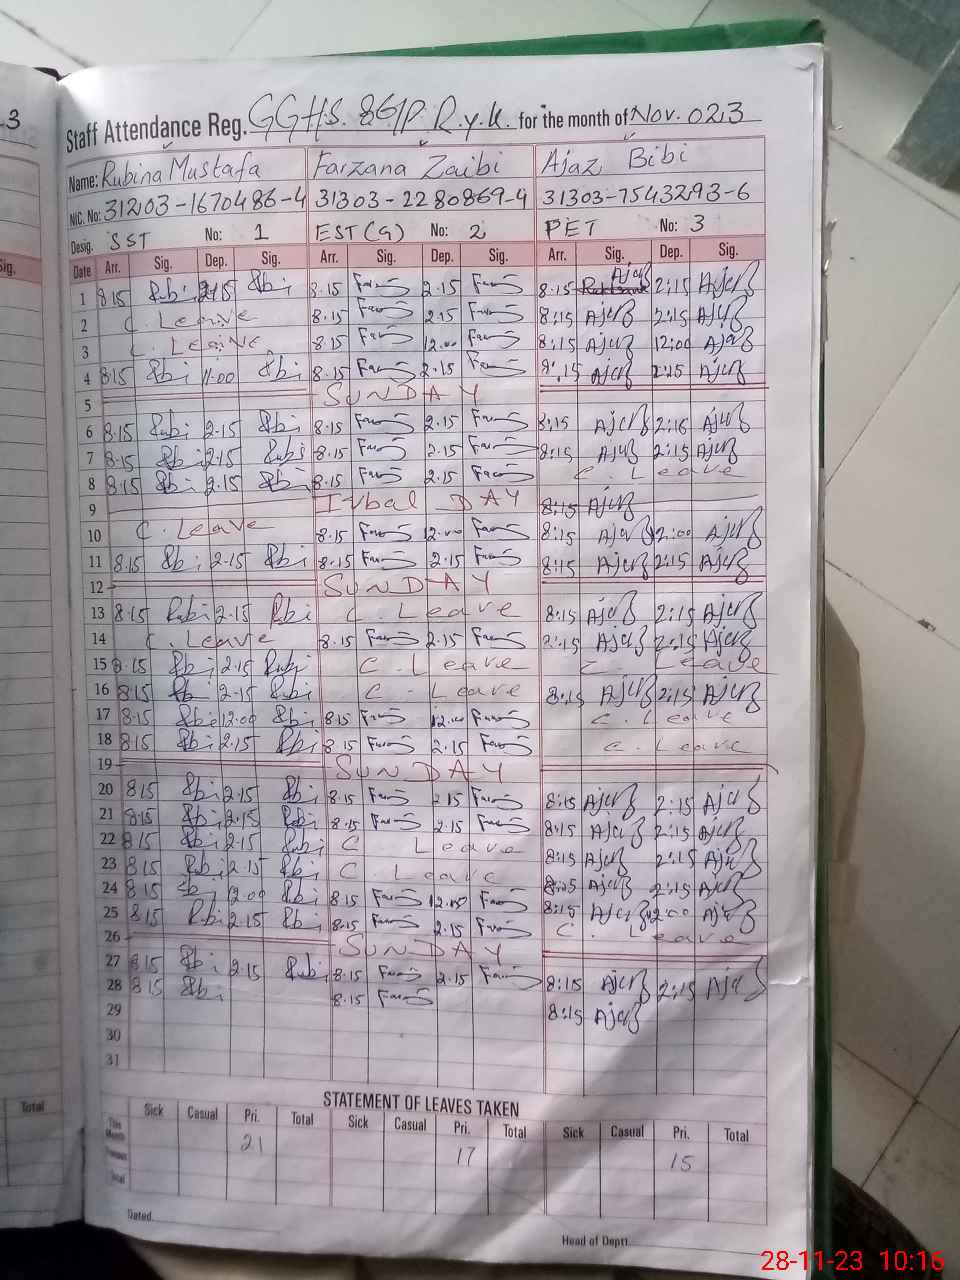 -3
Staff Attendance Reg. GGHS. 86/P R.y.K. for the month of Nov. 023
Name: Rubina Mustafa Farzana Zaibi Ajaz Bibi
NIC. No: 31203-1670486-4 31303-2280869-4 31303-7543293-6
Desig. SST No: 1 EST (G) No: 2 PET No: 3
Sig. Date Arr. Sig. Dep. Sig. Arr. Sig. Dep. Sig. Arr. Sig. Dep. Sig.
1 8.15 Rubi 2.15 Rbi 8.15 2.15 8.15 Ajaz 2:15 Ajaz
2 C. Leave 8.15 2.15 8:15 Ajaz 2:15 Ajaz
3 C. Leave 8.15 12.00 8:15 Ajaz 12:00 Ajaz
4 8.15 Rbi 11.00 Rbi 8.15 2.15 8:15 Ajaz 2:15 Ajaz
5 SUNDAY
6 8.15 Rubi 2.15 Rbi 8.15 2.15 8:15 Ajaz 2:15 Ajaz
7 8.15 Rbi 2.15 Rubi 8.15 2.15 8:15 Ajaz 2:15 Ajaz
8 8.15 Rbi 2.15 Rbi 8.15 2.15 C. Leave
9 Iqbal DAY 8:15 Ajaz
10 C. Leave 8.15 12.00 8:15 Ajaz 12:00 Ajaz
11 8.15 Rbi 2.15 Rbi 8.15 2.15 8:15 Ajaz 2:15 Ajaz
12 SUNDAY
13 8.15 Rubi 2.15 Rbi C. Leave 8:15 Ajaz 2:15 Ajaz
14 C. Leave 8.15 2.15 Ajaz 2:15 Ajaz
15 8.15 Rbi 2.15 Rubi C. Leave C. Leave
16 8.15 Rbi 2.15 Rubi C. Leave 8:15 Ajaz 2:15 Ajaz
17 8.15 Rbi 12.00 Rbi 8.15 12.00 C. Leave
18 8.15 Rbi 2.15 Rbi 8.15 2.15 C. Leave
19 SUNDAY
20 8.15 Rbi 2.15 Rbi 8.15 2.15 8:15 Ajaz 2:15 Ajaz
21 8.15 Rbi 2.15 Rbi 8.15 2.15 8:15 Ajaz 2:15 Ajaz
22 8.15 Rbi 2.15 Rubi C Leave 8:15 Ajaz 2:15 Ajaz
23 8.15 Rbi 2.15 Rbi C. Leave Ajaz 2:15 Ajaz
24 8.15 Rbi 12.00 Rbi 8.15 12.00 8:15 Ajaz Ajaz
25 8.15 Rubi 2.15 Rbi 8.15 2.15 C. Leave
26 SUNDAY
27 8.15 Rbi 2.15 Rubi 8.15 2.15 8:15 Ajaz 2:15 Ajaz
28 8.15 Rbi 8.15 8:15 Ajaz
29
30
31
STATEMENT OF LEAVES TAKEN
Total Sick Casual Pri. Total Sick Casual Pri. Total Sick Casual Pri. Total
This Month 21 17 15
Previous
Total
Dated
Head of Deptt.
28-11-23 10:16